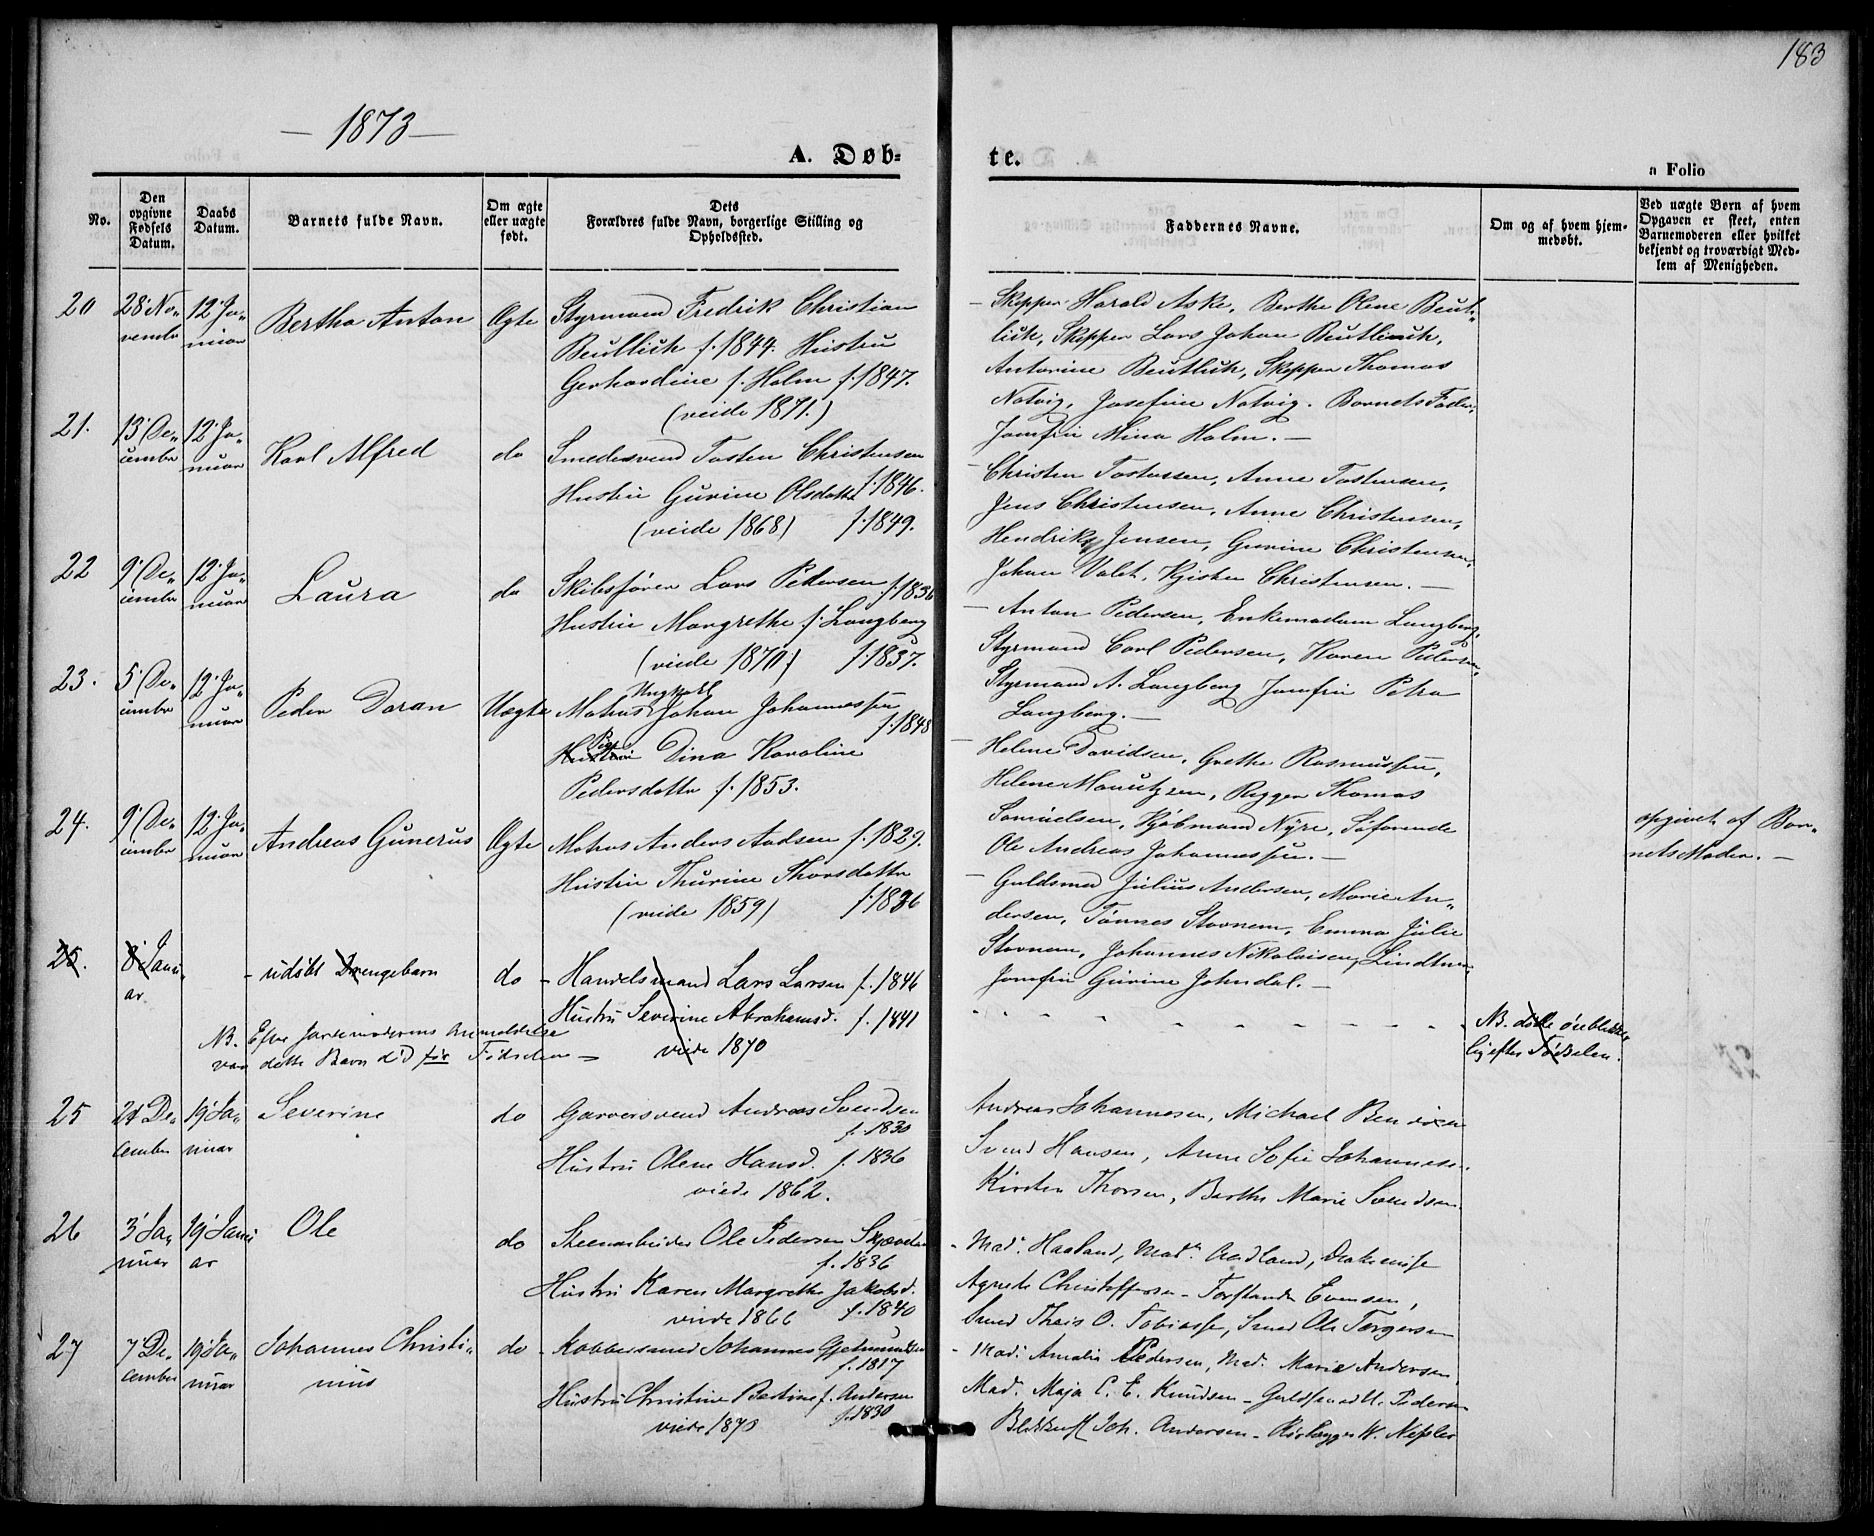 183
— 1873 —
A. Døb=
te.
a Folio
No.
Den
opgivne
Fødsels
Datum.
Daabs
Datum.
Barnets fulde Navn.
Om ægte
eller uægte
født.
Dets
Forældres fulde Navn, borgerlige Stilling og
Opholdssted.
Faddernes Navne.
Om og af hvem hjem-
medøbt.
Ved uægte Børn af hvem
Opgaven er skeet, enten
Barnemoderen eller hvilket
bekjendt og troværdigt Med-
lem af Menigheden.
20
28' No-
vembr
12' Ja-
nuar
Bertha Anton
Ægte
Styrmand Fredrik Christian
Beutlich f. 1844. Hustru
Gerhardine f. Holm f. 1847.
(viede 1871.)
— Skipper Harald Aske, Berthe Olene Beut-
lich, Skipper Lars Johan Beutlich,
Antonine Beutlich, Skipper Thomas
Natvig, Josefine Natvig. Barnets Fader,
Jomfru Mina Holm. —
21.
13' De-
cembr
12' Ja-
nuar
Karl Alfred
do
Smedesvend Tosten Christensen
f. 1846.
Hustru Gurine Olsdatter
(viede 1868) f. 1849.
— Christen Tostensen, Anne Tostensen,
Jens Christensen, Anne Christensen,
Hendrik Jensen, Gurine Christensen,
Johan Valet, Kjisten Christensen. —
22
9' De-
cembr
12' Ja-
nuar
Laura
do
Skibsfører Lars Pedersen f. 1836
Hustru Margrethe f. Langberg
(viede 1870) f. 1837.
— Anton Pedersen, Enkemadam Langberg,
Styrmand Carl Pedersen, Karen Pedersen,
Styrmand A. Langberg Jomfru Petra
Langberg. —
23.
5' De-
cembr
12' Ja-
nuar
Peder Doran
Uægte
Ungkarl
Matros Johan Johannessen
f. 1848
Pige
Hustru Dina Karoline
Pedersdatter f. 1853.
— Helene Davidsen, Grethe Rasmussen,
Helene Mauritzen, Rygger Thomas
Samuelsen, Kjøbmand Nyre, Søfarende
Ole Andreas Johannessen. —
opgivet af Bar-
nets Moder. —
24.
9' De-
cembr
12' Ja-
nuar
Andreas Gunerus
Ægte
Matros Anders Aadsen f. 1829.
Hustru Thurine Thorsdatter
(viede 1859) f. 1836
— Guldsmed Julius Andersen, Marie An-
dersen, Tønnes Stavnem, Emma Julie
Stavnem, Johannes Nikolaisen Lindtner,
Jomfru Gurine Johndal. —
25.
8' Janu-
ar
- udøbt Drengebarn
do
- Handelsmand Lars Larsen f. 1846
Hustru Severine Abrahamsd. f. 1841
viede 1870
NB. døde øieblikke-
lig efter Fødselen.
NB. Efter Jordemoderens Anmeldelse
var dette Barn død før Fødselen —
25
24 De-
cember
19' Ja-
nuar
Severine
do
Garversvend Andreas Svendsen
f. 1830
Hustru Olene Hansd. f. 1836
viede 1862.
Andreas Johannesen, Michael Bendixen
Svend Hansen, Anne Sofie Johannesen
Kirsten Thorsen, Berthe Marie Svendsen
26
3' Ja-
nuar
19' Janu
ar
Ole
do
Steenarbeider Ole Pedersen
f. 1836
Hustru Karen Margrethe Jakobsd.
viede 1866 f. 1840
- Mad. Haaland, Mad. Aadland,
Agnete Christoffersen - Forstander Evensen,
Smed Thais O. Tobiasse, Smed Ole Torgersen
27
7' De-
cember
19' Ja-
nuar
Johannes Christi-
nius
do
- Kobbersmed Johannes Gjetmundsen
f. 1817
Hustru Christine Bertine f. Andersen
viede 1870 f. 1830
- Mad. Amalia Pedersen, Mad. Marie Andersen,
Mad. Maja C. E. Knudsen - Guldsmed U. Pedersen
Johs. Andersen - W. Nessler